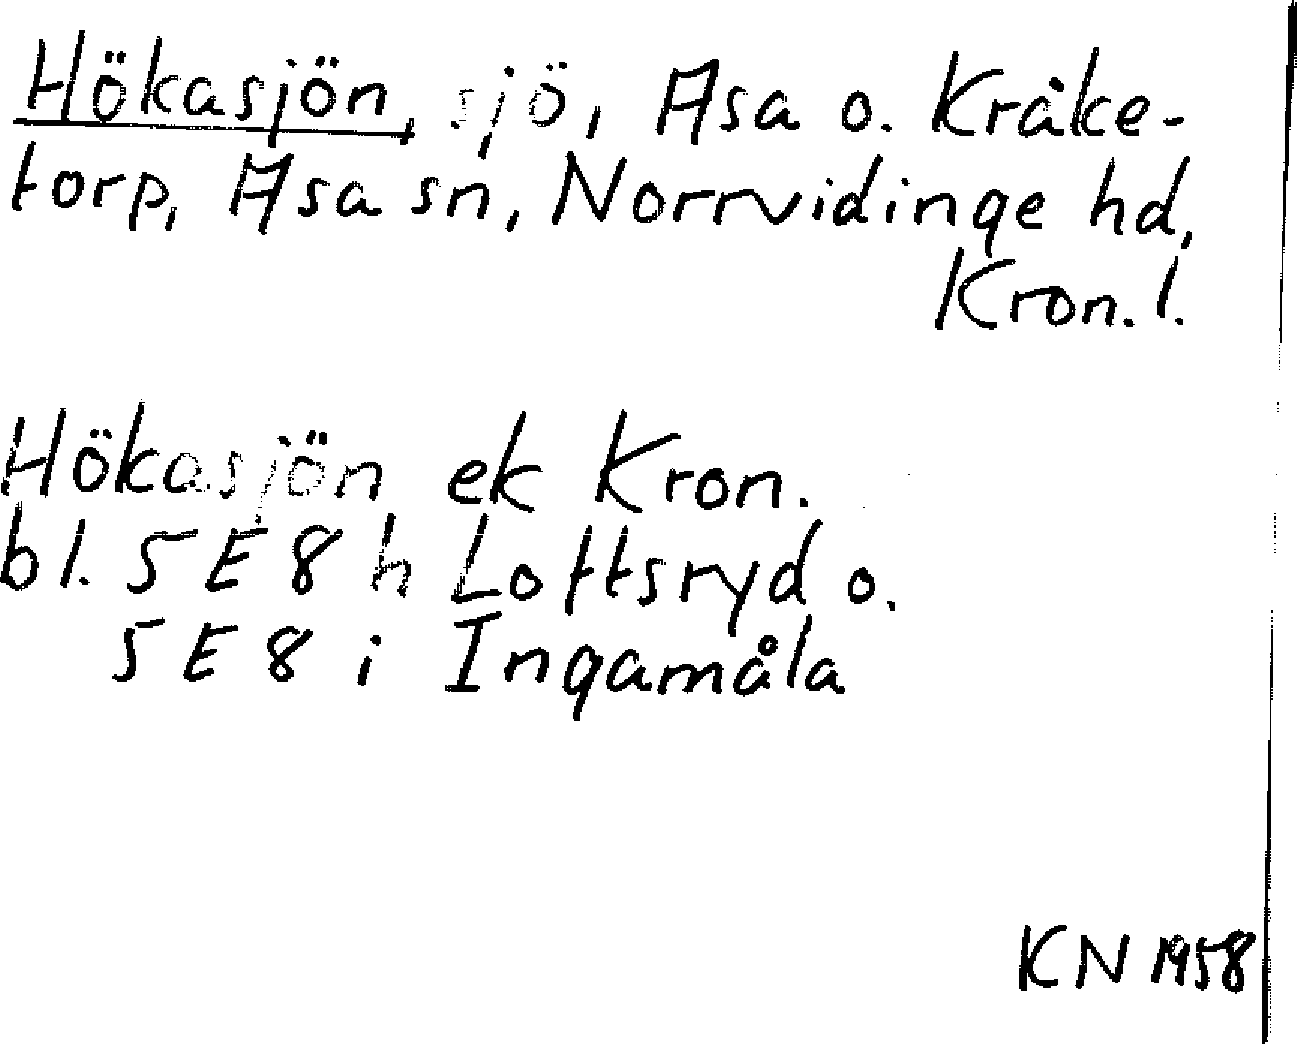 Hökasjön, sjö, Asa o. Kråke-
torp, Asa sn, Norrvidinge hd,
Kron. l.
Hökasjön ek Kron.
bl. 5 E 8 h Loftsryd o.
5 E 8 i Ingamåla
KN 1958